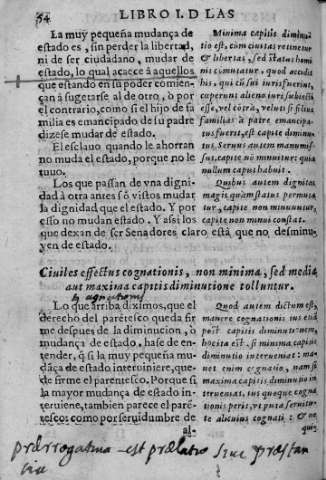 54 LIBRO I. D LAS
La muy pequeña mudança de
estado es, sin perder la libertad,
ni de ser ciudadano, mudar de
estado, lo qual acaece à aquellos
que estando en su poder comien-
çan à sugetarse al de otro, ò por
el contrario, como si el hijo de fa
milia es emancipado de su padre
dizese mudar de estado.
El esclauo quando le ahorran
no muda el estado, porque no le
tuuo.
Los que passan de vna digni-
dad à otra antes ò vistos mudar
la dignidad, que el estado. Y por
esso no mudan estado. Y assi los
que dexan de ser Senadores claro
està, que no desminu-
yen de estado.
Minima capitis diminu-
tio est, cum ciuitas retinetur
& libertas, sed status homi-
nis commutatur, quod accidit
his, qui cùm sui iuris fuerint,
cœperunt alieno iuri subiecti
esse, vel contrà, veluti si filius
familias à patre emancipa-
tus fuerit, est capite diminu-
tus. Seruus autem manumis-
sus, capite nõ minuitur: quia
nullum caput habuit.
Quibus autem dignitas
magis, quàm status permuta-
tur, capite non minuuntur,
capite non minui constat.
Ciuiles effectus cognationis, non minima, sed media,
aut maxima capitis diminutione tolluntur.
agnationis
Lo que arriba diximos, que el
derecho del parẽtesco queda fir
me despues de la diminucion, ò
mudança de estado, hase de en-
tender, q̃ si la muy pequeña mu-
dãça de estado interuiniere, que-
de firme el parentesco. Porque si
la mayor mudança de estado in-
teruiene, tambien parece el parẽ-
tesco: como por seruidumbre de
al-
Quod autem dictum est,
manere cognationis ius etiã
post capitis diminutionem,
hoc ita est, si minima capitis
diminutio interueniat: ma-
net enim cognatio, nam si
maxima capitis diminutio in
terueniat, ius quoque cogna
tionis perit, vt puta seruitu-
te alicuius cognati: & ne
quis
prærrogatiua est prælatio siue præstan
tia